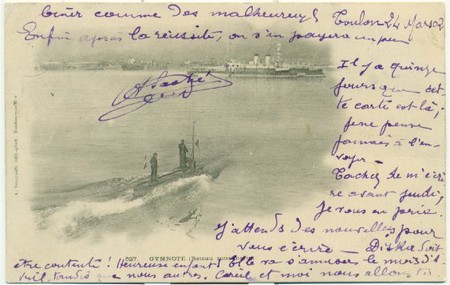 biner comme des malheureux! Toulon 24 Mars 02
Enfin après la réussite, on s'en payera un peu
Il y a quinze
jours que cet
te carte est là;
je ne pense
jamais à l'en-
voyer -
Tachez de m'écri
re avant jeudi,
je vous en prie.
J'attends des nouvelles pour
vous écrire - Did doit
627. GYMNOTE (Bateau
être contente! Heureuse enfant! Elle va s'amuser le mois d'A
vril, tandis que nous autres. Cécil et moi nous allons tu